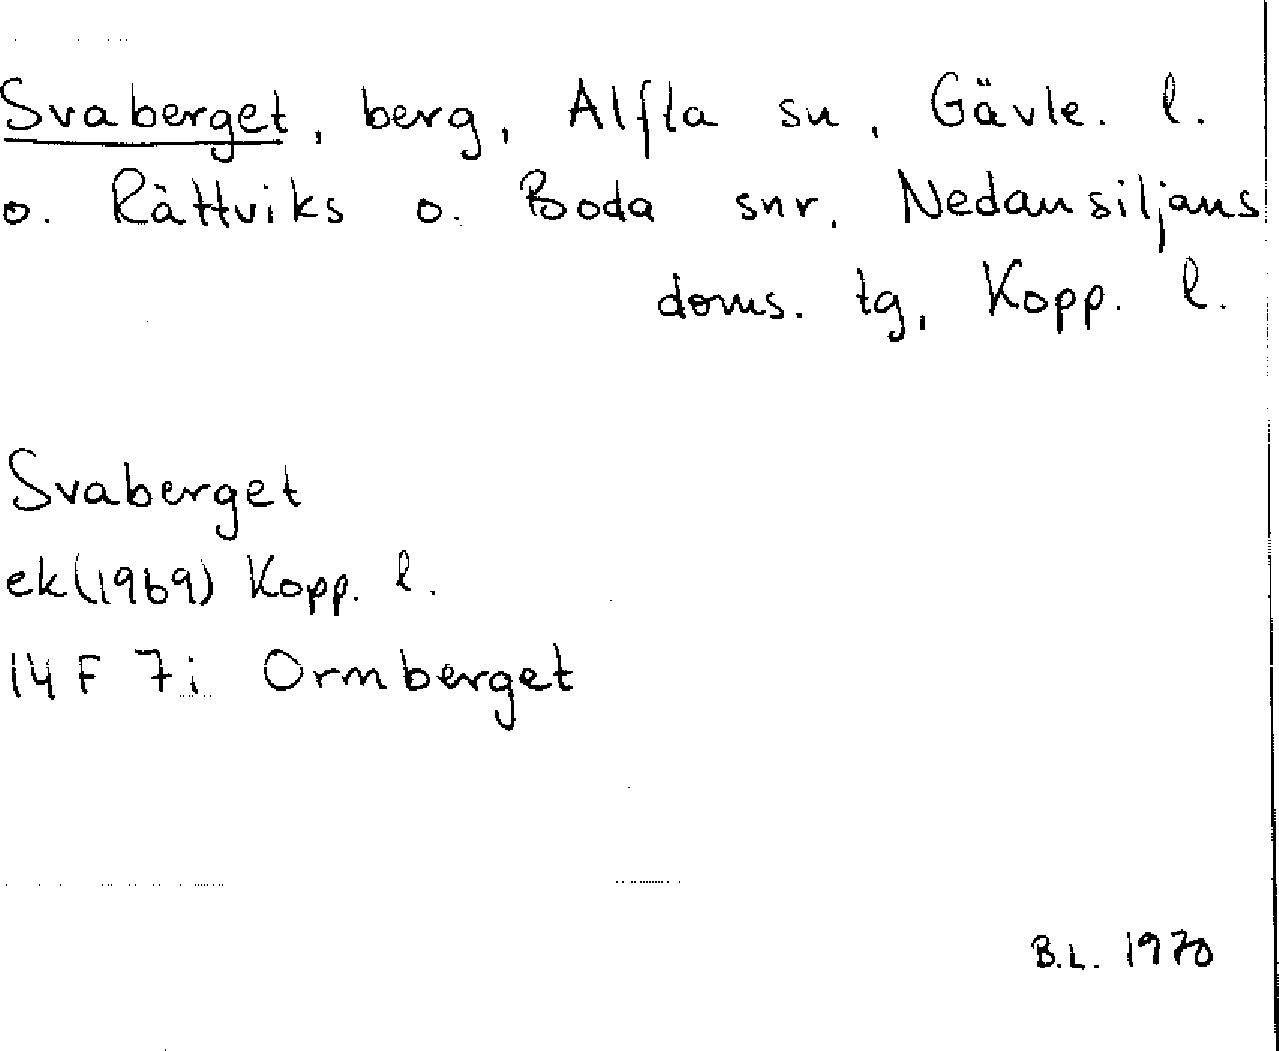 Svaberget, berg, Alfta sn, Gävle. l.
o. Rättviks o. Boda snr, Nedansiljans
doms. tg, Kopp. l.
Svaberget
ek(1969) Kopp. l.
14 F 7i Ormberget
B.L. 1970